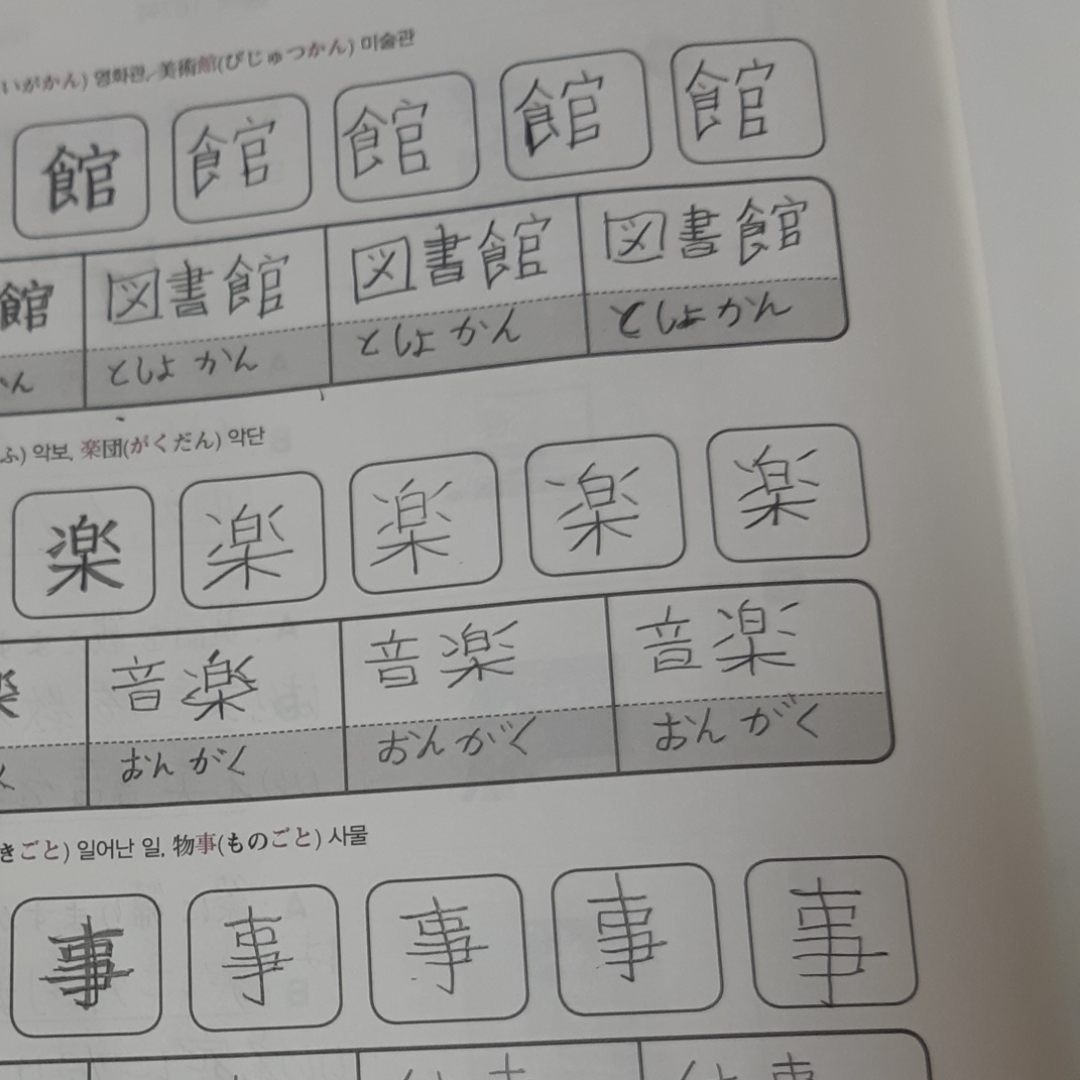 いがかん) 영화관, 美術館(びじゅつかん) 미술관
館 館 館 館 館
館 図書館 図書館 図書館
かん としょかん としょかん としょかん
ふ) 악보, 楽団(がくだん) 악단
楽 楽 楽 楽 楽
楽 音楽 音楽 音楽
く おんがく おんがく おんがく
きごと) 일어난 일, 物事(ものごと) 사물
事 事 事 事 事